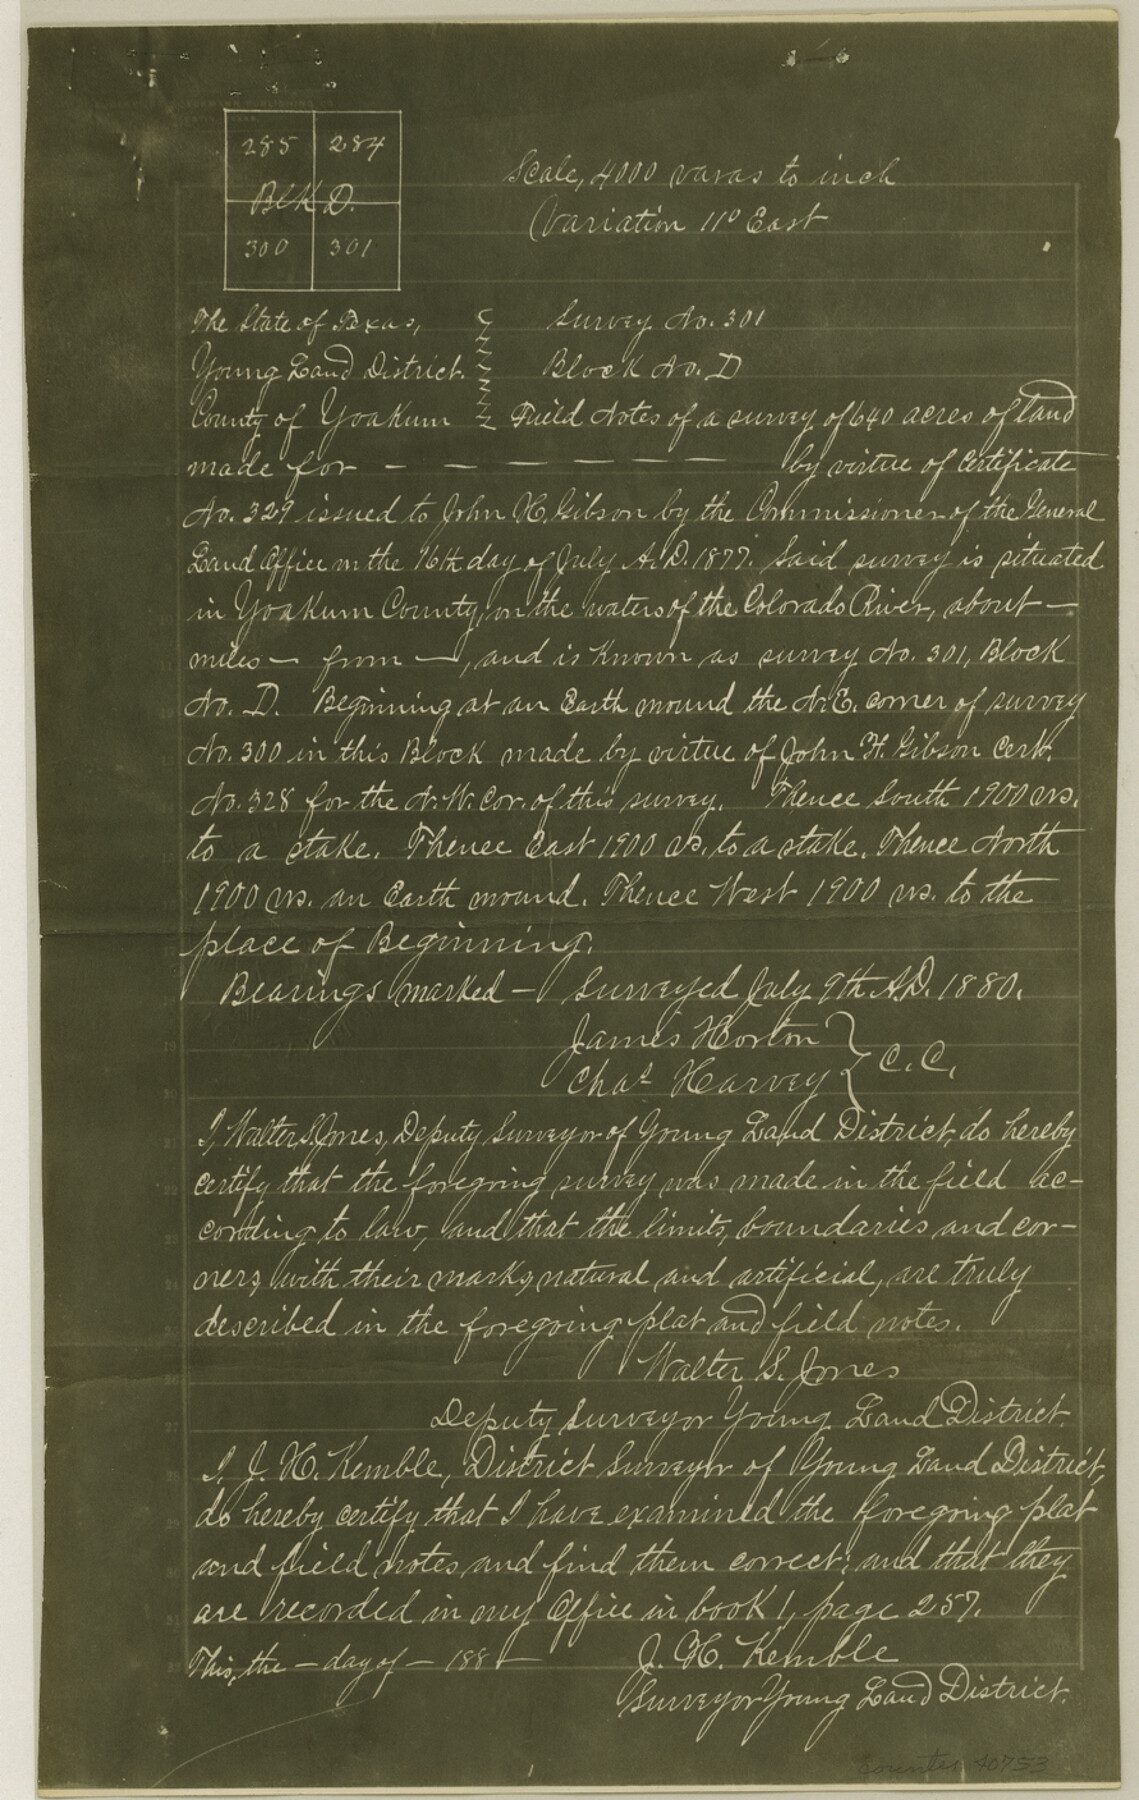 285 284
Blk D.
300 301
Scale, 4000 varas to inch
Variation 11° East
The State of Texas,
Young Land District.
County of Yoakum
Survey No. 301
Block No. D
Field Notes of a survey of 640 acres of land
made for — — — — — — — by virtue of Certificate
No. 329 issued to John H. Gibson by the Commissioner of the General
Land Office on the 16th day of July A.D. 1877. Said survey is situated
in Yoakum County, on the waters of the Colorado River, about —
miles — from —, and is Known as survey No. 301, Block
No. D. Beginning at an Earth mound the N.E. corner of survey
No. 300 in this Block made by virtue of John H. Gibson Cert.
No. 328 for the N.W. Cor. of this survey. Thence South 1900 vs.
to a stake. Thence East 1900 vs. to a stake. Thence North
1900 vs. an Earth mound. Thence West 1900 vs. to the
place of Beginning.
Bearings marked — Surveyed July 9th A.D. 1880.
James Horton
Chas Harvey } C.C.
I, Walter S. Jones, Deputy Surveyor of Young Land District, do hereby
certify that the foregoing survey was made in the field ac-
cording to law, and that the limits, boundaries and cor-
ners, with their marks, natural and artificial, are truly
described in the foregoing plat and field notes.
Walter S. Jones
Deputy Surveyor Young Land District.
I, J. H. Kemble, District Surveyor of Young Land District,
do hereby certify that I have examined the foregoing plat
and field notes and find them correct; and that they
are recorded in my Office in book 1, page 257.
This, the — day of — 188 —
J. H. Kemble
Surveyor Young Land District.
counter 40753